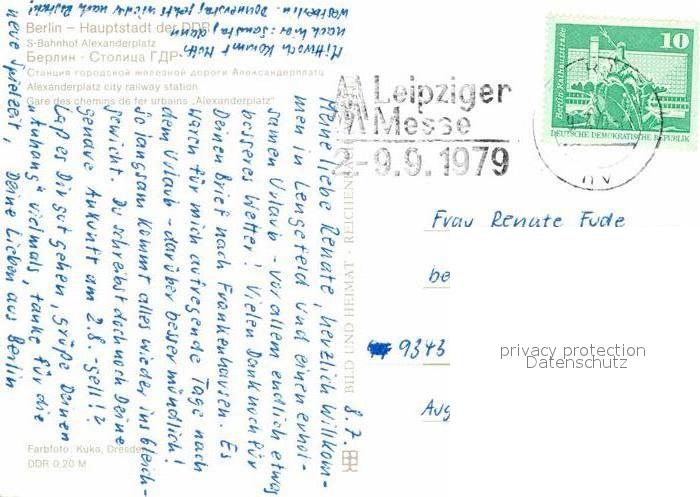 Berlin – Hauptstadt der DDR
S-Bahnhof Alexanderplatz
Берлин · Столица ГДР
Станция городской железной дороги Александерплатц
Alexanderplatz city railway station
Gare des chemins de fer urbains „Alexanderplatz“
8.7.
Meine liebe Renate, herzlich willkom-
men in Lengefeld und einen erhol-
samen Urlaub - vor allem endlich etwas
besseres Wetter! Vielen Dank noch für
Deinen Brief nach Frankenhausen. Es
waren für mich aufregende Tage nach
dem Urlaub - darüber besser mündlich!
So langsam kommt alles wieder ins Gleich-
gewicht. Du schreibst doch noch Deine
genaue Ankunft am 2.8. - gell!?
Laß es Dir gut gehen, grüße Deinen
"Anhang" vielmals, danke für die
neue Spielzeit, Deine Lieben aus Berlin
Mittwoch kommt
Westberlin. Donnerstag geht's wieder nach
Farbfoto: Kuka, Dresden
DDR 0,20 M
BILD UND HEIMAT · REICHENBACH
Leipziger
Messe
2.-9.9.1979
10
Berlin, Rathausstraße
DEUTSCHE DEMOKRATISCHE REPUBLIK
Frau Renate Fude
be
9343
Aug
privacy protection
Datenschutz